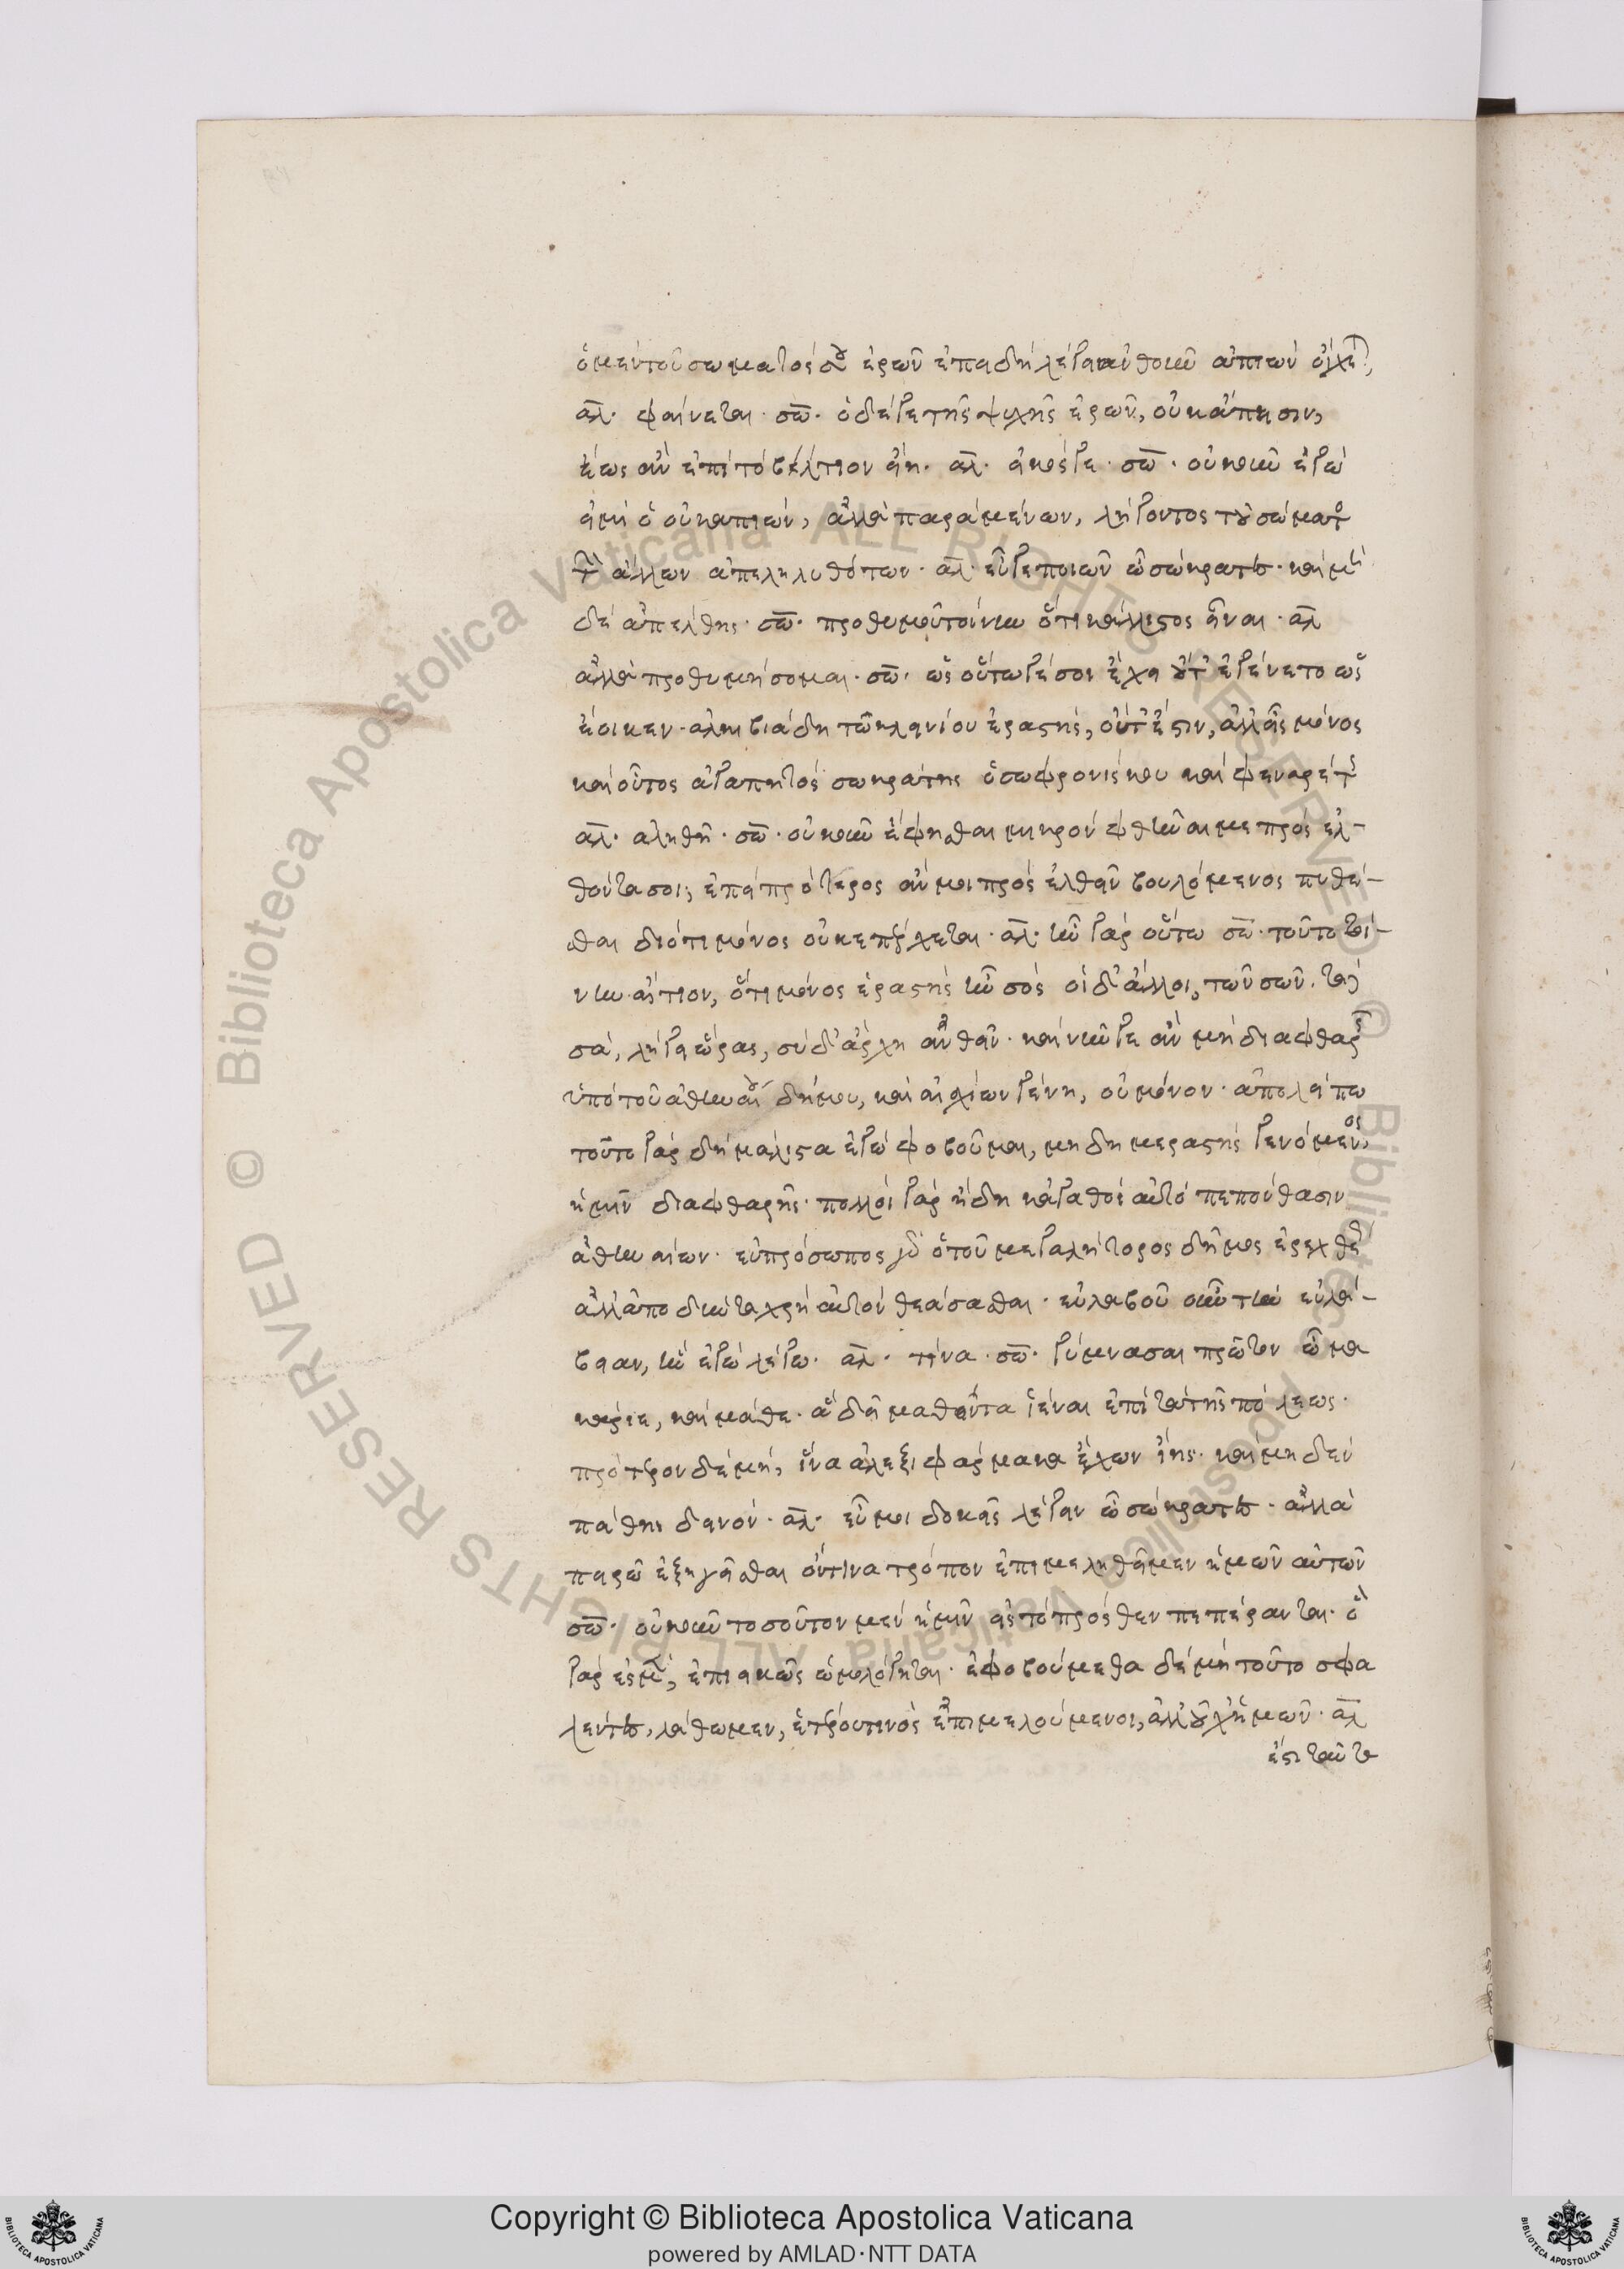 ὁ μὲν τοῦ σώματός σου ἐρῶν ἐπειδὴ λήγει ἀνθοῦν ἀπιὼν οἴχεται,
ἀλ. φαίνεται. σω. ὁ δέ γε τῆς ψυχῆς ἐρῶν, οὐκ ἄπεισιν,
ἕως ἂν ἐπὶ τὸ βέλτιον ἴῃ. ἀλ. εἰκός γε. σω. οὐκοῦν ἐγώ
εἰμι ὁ οὐκ ἀπιών, ἀλλὰ παραμένων, λήγοντος τοῦ σώματος
τῶν ἄλλων ἀπεληλυθότων. ἀλ. εὖ γε ποιῶν ὦ σώκρατες. καὶ μὴ
δὲ ἀπέλθης. σω. προθυμοῦ τοίνυν ὅτι κάλλιστος εἶναι. ἀλ
ἀλλὰ προθυμήσομαι. σω. ὡς οὕτω γέ σοι ἔχει οὔτ' ἐγένετο ὡς
ἔοικεν. ἀλκιβιάδη τῶ κλεινίου ἐραστής, οὔτ' ἔστιν, ἀλλ' εἷς μόνος
καὶ οὗτος ἀγαπητός σωκράτης ὁ σωφρονίσκου καὶ φεναρέτης
ἀλ. ἀληθῆ. σω. οὐκοῦν ἔφησθα σμικρὸν φθῆναί με προσελ-
θόντα σοι; ἐπεὶ πρότερος ἄν μοι προσελθεῖν βουλόμενος πυθέ-
σθαι διότι μόνος οὐκ ἀπέρχεται. ἀλ. ἦν γὰρ οὕτω σω. τοῦτο τοί-
νυν αἴτιον, ὅτι μόνος ἐραστὴς ἦν σός οἱ δ' ἄλλοι, τῶν σῶν. τὰ
σά, λήγει ὥρας, σὺ δ' ἄρχη ἀνθεῖν. καὶ νῦν γε ἂν μὴ διαφθαρῆς
ὑπὸ τοῦ ἀθηναίων δήμου, καὶ αἰσχίων γένη, οὐ μόνον. ἀπολείπω
τοῦτο γὰρ δὴ μάλιστα ἐγὼ φοβοῦμαι, μὴ δημεραστὴς γενόμενος
ἡμῖν διαφθαρῆς. πολλοὶ γὰρ ἤδη κἀγαθοὶ αὐτὸ πεπόνθασιν
ἀθηναίων. εὐπρόσωπος γὰρ ὁ τοῦ μεγαλήτορος δῆμος ἐρεχθέως
ἀλλ' ἀποδύντα χρὴ αὐτὸν θεάσασθαι. εὐλαβοῦ οὖν τὴν εὐλά-
βειαν, ἣν ἐγὼ λέγω. ἀλ. τίνα. σω. γύμνασαι πρῶτον ὦ μα
κάριε, καὶ μάθε. ἃ δεῖ μαθόντα ἰέναι ἐπὶ τὰ τῆς πόλεως.
πρότερον δὲ μή, ἵνα ἀλεξιφάρμακα ἔχων ἴης. καὶ μηδὲν
πάθης δεινόν. ἀλ. εὖ μοι δοκεῖς λέγειν ὦ σώκρατες. ἀλλὰ
πειρῶ ἐξηγεῖσθαι ὅντινα τρόπον ἐπιμεληθεῖμεν ἡμῶν αὐτῶν
σω. οὐκοῦν τοσοῦτον μὲν ἡμῖν εἰς τὸ πρόσθεν πεπέρανται. ὃ
γὰρ ἐσμέν, ἐπιεικῶς ὡμολόγηται. ἐφοβούμεθα δὲ μὴ τοῦτο σφα
λέντες, λάθωμεν, ἑτέρου τινὸς ἐπιμελούμενοι, ἀλλ' οὐχ ἡμῶν. ἀλ
ἔστι ταῦτα